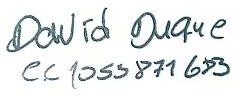 David Duque
cc 1053871683